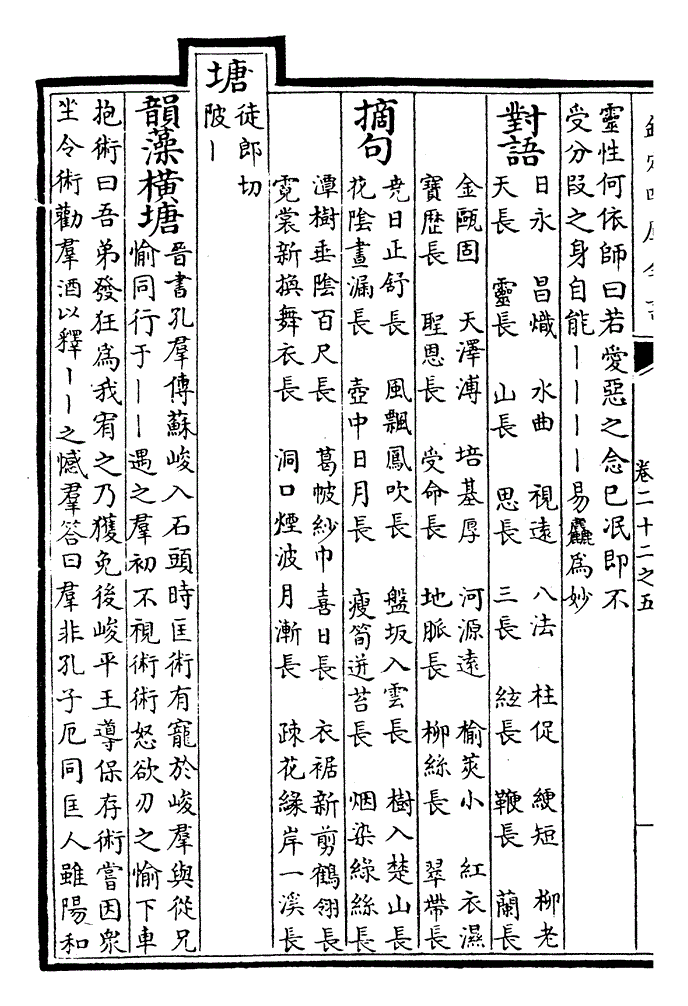 卷二十二之五
靈性何依師曰若愛惡之念已泯即不
受分段之身自能丨丨丨丨易麤為妙
對語
日永 昌熾 水曲 視遠 八法 柱促 綆短 柳老
天長 靈長 山長 思長 三長 絃長 鞭長 蘭長
金甌固 天澤溥 培基厚 河源遠 榆莢小 紅衣濕
寶歴長 聖恩長 受命長 地脈長 柳絲長 翠帶長
摘句
堯日正舒長 風飄鳳吹長 盤坂入雲長 樹入楚山長
花陰晝漏長 壺中日月長 瘦筍迸苔長 烟染綠絲長
潭樹垂陰百尺長 葛帔紗巾喜日長 衣裾新剪鶴翎長
霓裳新換舞衣長 洞口煙波月漸長 疎花緣岸一溪長
塘
徒郎切
陂丨
韻藻橫塘
晉書孔羣傳蘇峻入石頭時匡術有寵於峻羣與從兄
愉同行于丨丨遇之羣初不視術術怒欲刃之愉下車
抱術曰吾弟發狂為我宥之乃獲免後峻平王導保存術嘗因衆
坐令術勸羣酒以釋丨丨之憾羣答曰羣非孔子厄同匡人雖陽和